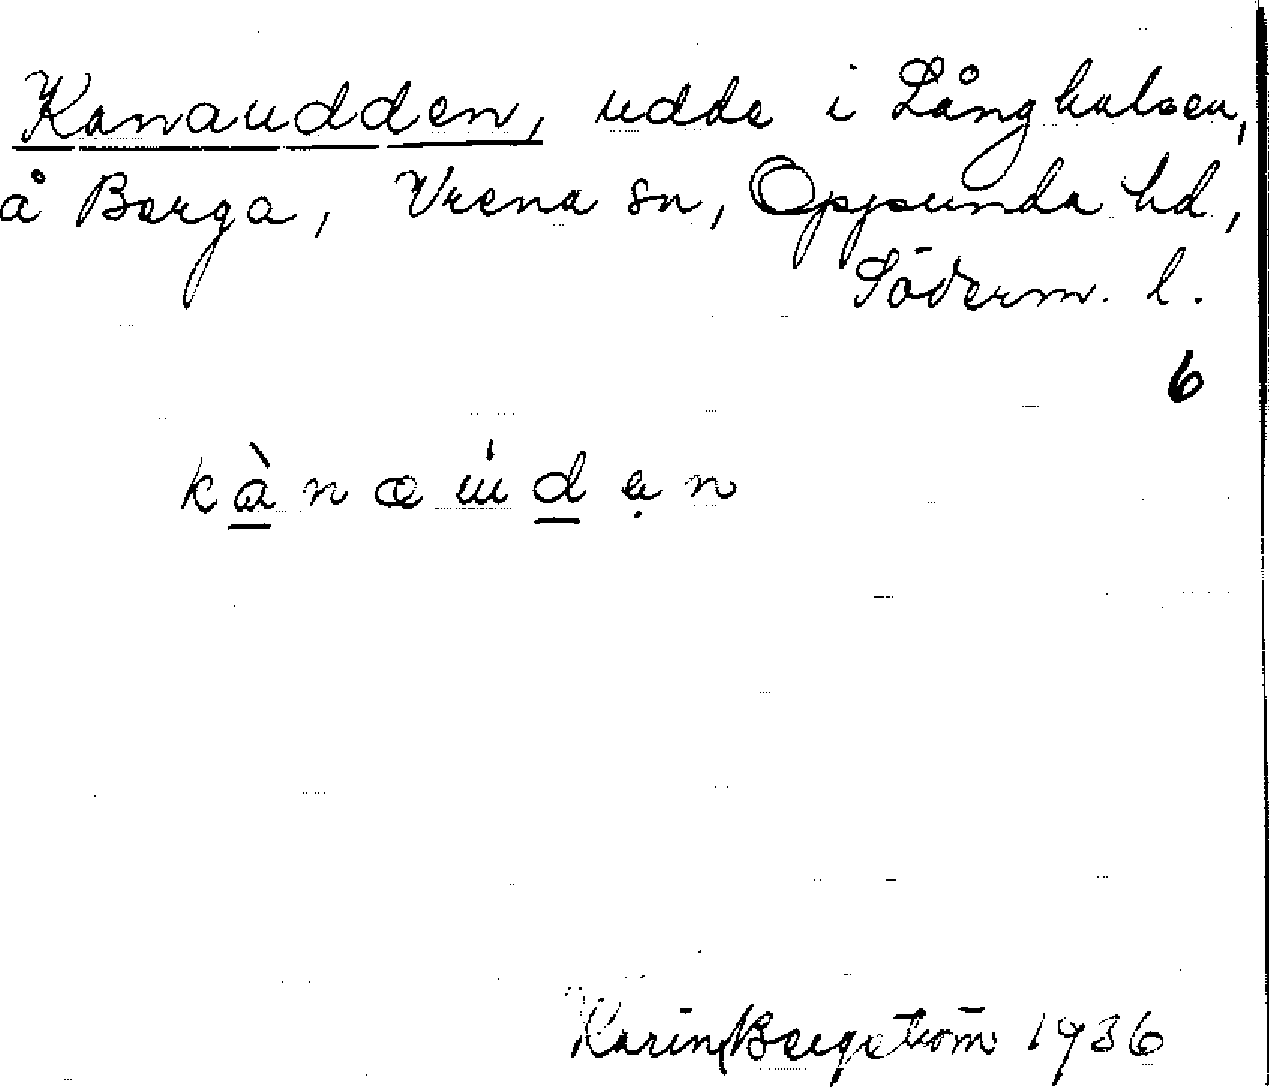 Kanaudden, udde i Långhalsen,
å Berga, Vrena sn, Oppunda hd,
Söderm. l.
6
kànaʉ́dẹn
Karin Bergström 1936